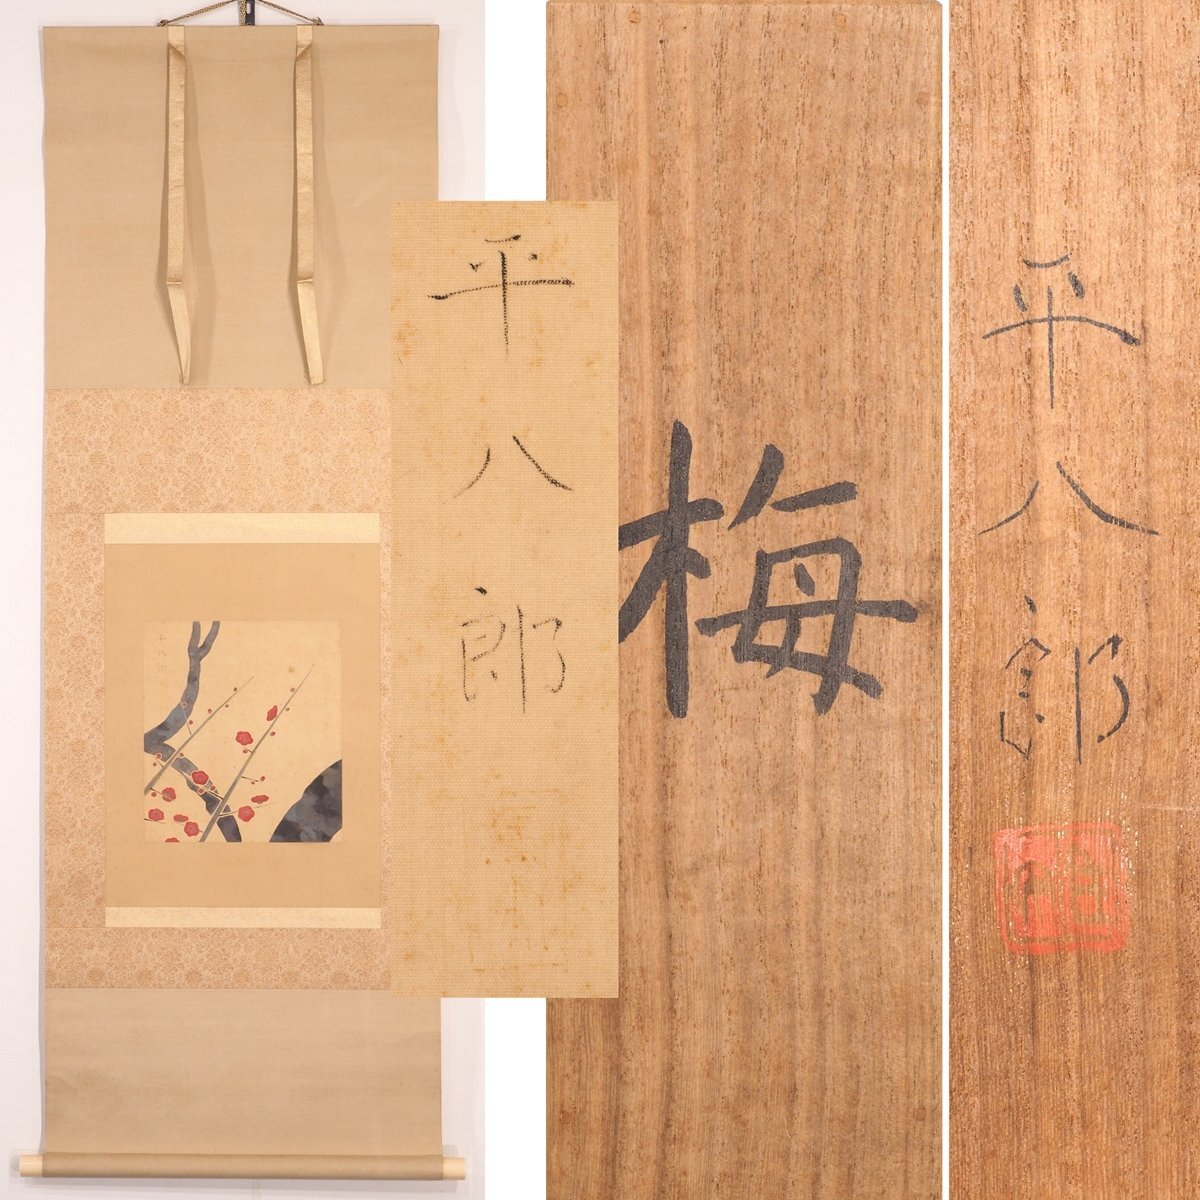 平八郎
平八郎
梅
平八郎